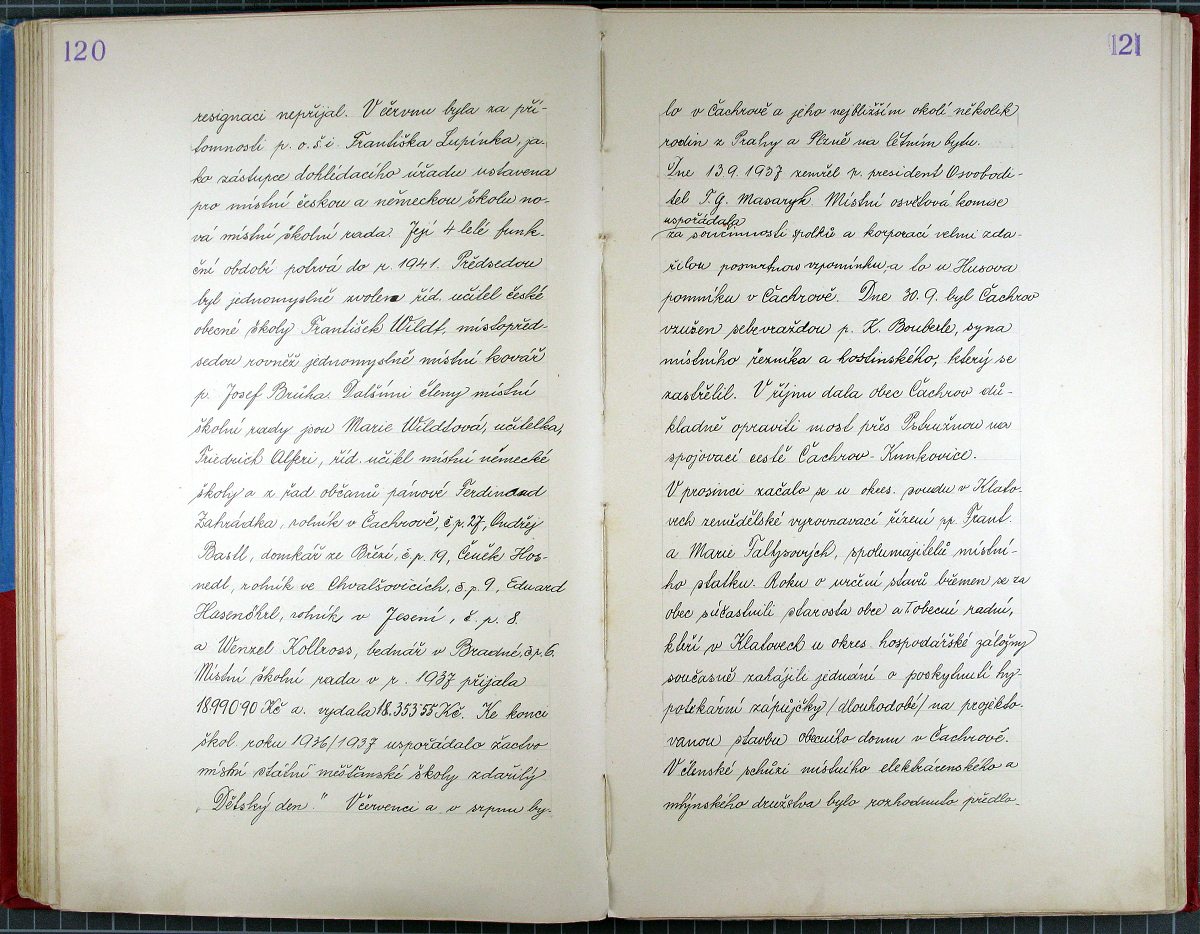 120
resignaci nepřijal. V červnu byla za pří-
tomnosti p. o. š. i. Františka Lupínka, ja-
ko zástupce dohlédacího úřadu ustavena
pro místní českou a německou školu no-
vá místní školní rada. Její 4 leté funk-
ční období potrvá do r. 1941. Předsedou
byl jednomyslně zvolen říd. učitel české
obecné školy František Wildt, místopřed-
sedou rovněž jednomyslně místní kovář
p. Josef Brůha. Dalšími členy místní
školní rady jsou Marie Wildtová, učitelka,
Friedrich Alferi, říd. učitel místní německé
školy a z řad občanů pánové Ferdinand
Zahrádka, rolník v Čachrově, č. p. 27, Ondřej
Bastl, domkář ze Březí, č. p. 19, Čeněk Hos-
nedl, rolník ve Chvalšovicích, č. p. 9, Eduard
Hasenöhrl, rolník, v Jesení, č. p. 8
a Wenzel Kollross, bednář v Bradné, č. p. 6.
Místní školní rada v r. 1937 přijala
18.990 90 Kč a. vydala 18.353 55 Kč. Ke konci
škol. roku 1936/1937 uspořádalo žactvo
místní státní měšťanské školy zdařilý
„Dětský den." V červenci a v srpnu by-
121
lo v Čachrově a jeho nejbližším okolí několik
rodin z Prahy a Plzně na letním bytu.
Dne 13.9. 1937 zemřel p. president Osvobodi-
tel T. G. Masaryk. Místní osvětová komise
uspořádala
za součinnosti spolků a korporací velmi zda-
řilou posmrtnou vzpomínku, a to u Husova
pomníku v Čachrově. Dne 30. 9. byl Čachrov
vzušen sebevraždou p. K. Bouberle, syna
místního řezníka a hostinského, který se
zastřelil. V říjnu dala obec Čachrov dů-
kladně opraviti most přes Ostružnou na
spojovací cestě Čachrov - Kunkovice.
V prosinci začalo se u okres. soudu v Klato-
vech zemědělské vyrovnavací řízení pp. Frant.
a Marie Taltzových, spolumajitelů místní-
ho statku. Roku o určení stavů břemen se za
obec súčastnili starosta obce a obecní radní,
kteří v Klatovech u okres. hospodářské záložny
současně zahájili jednání o poskytnutí hy-
potekarní zápůjčky /dlouhodobé/ na projekto-
vanou stavbu obecního domu v Čachrově.
V členské schůzi místního elektrárenského a
mlýnského družstva bylo rozhodnuto předlo-